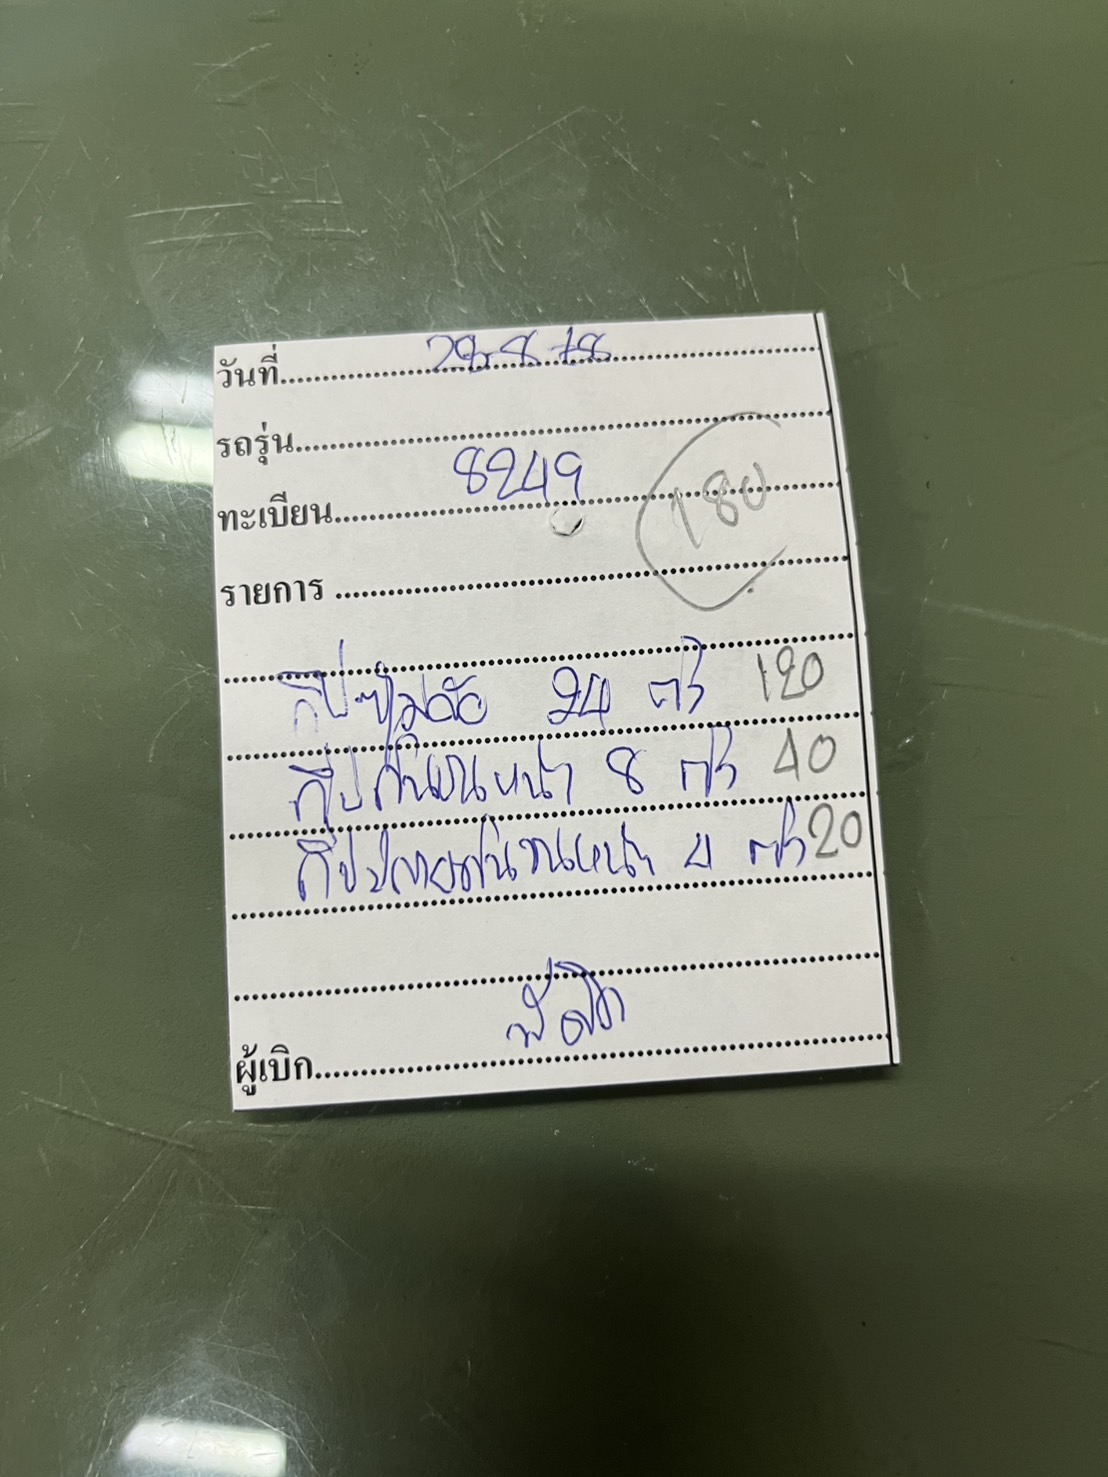 วันที่
รถรุ่น
ทะเบียน 8249
180
รายการ
24 ตัว 120
กิ๊ปกันชนหน้า 8 ตัว 40
กิ๊ปปลายกันชนหน้า 4 ตัว 20
ผู้เบิก